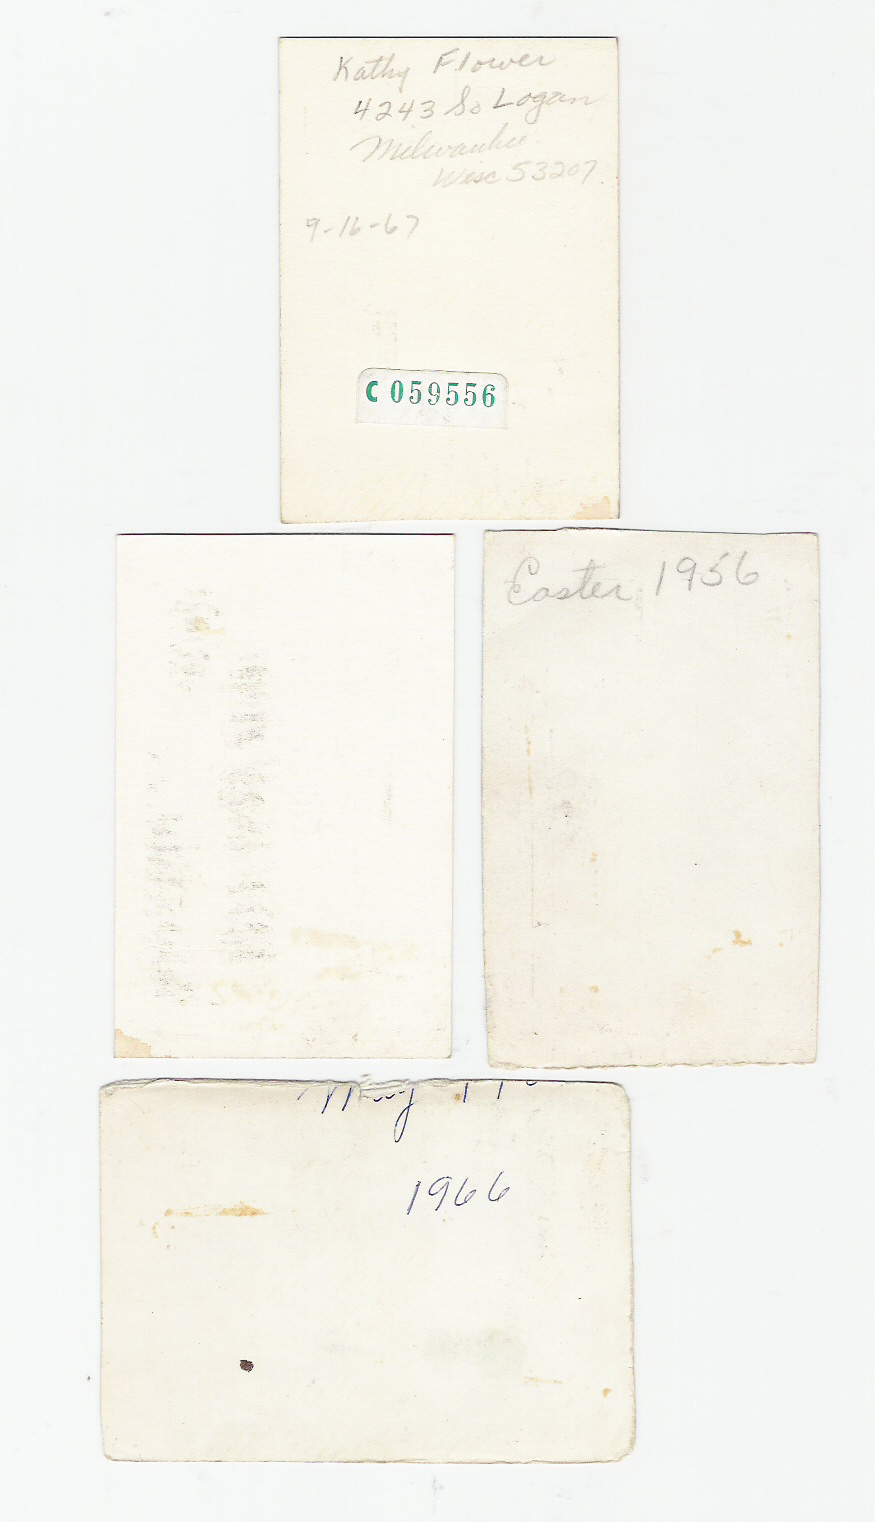 Kathy Flower
4243 So Logan
Milwaukee
Wisc 53207
9-16-67
C 059556
Easter 1956
1966